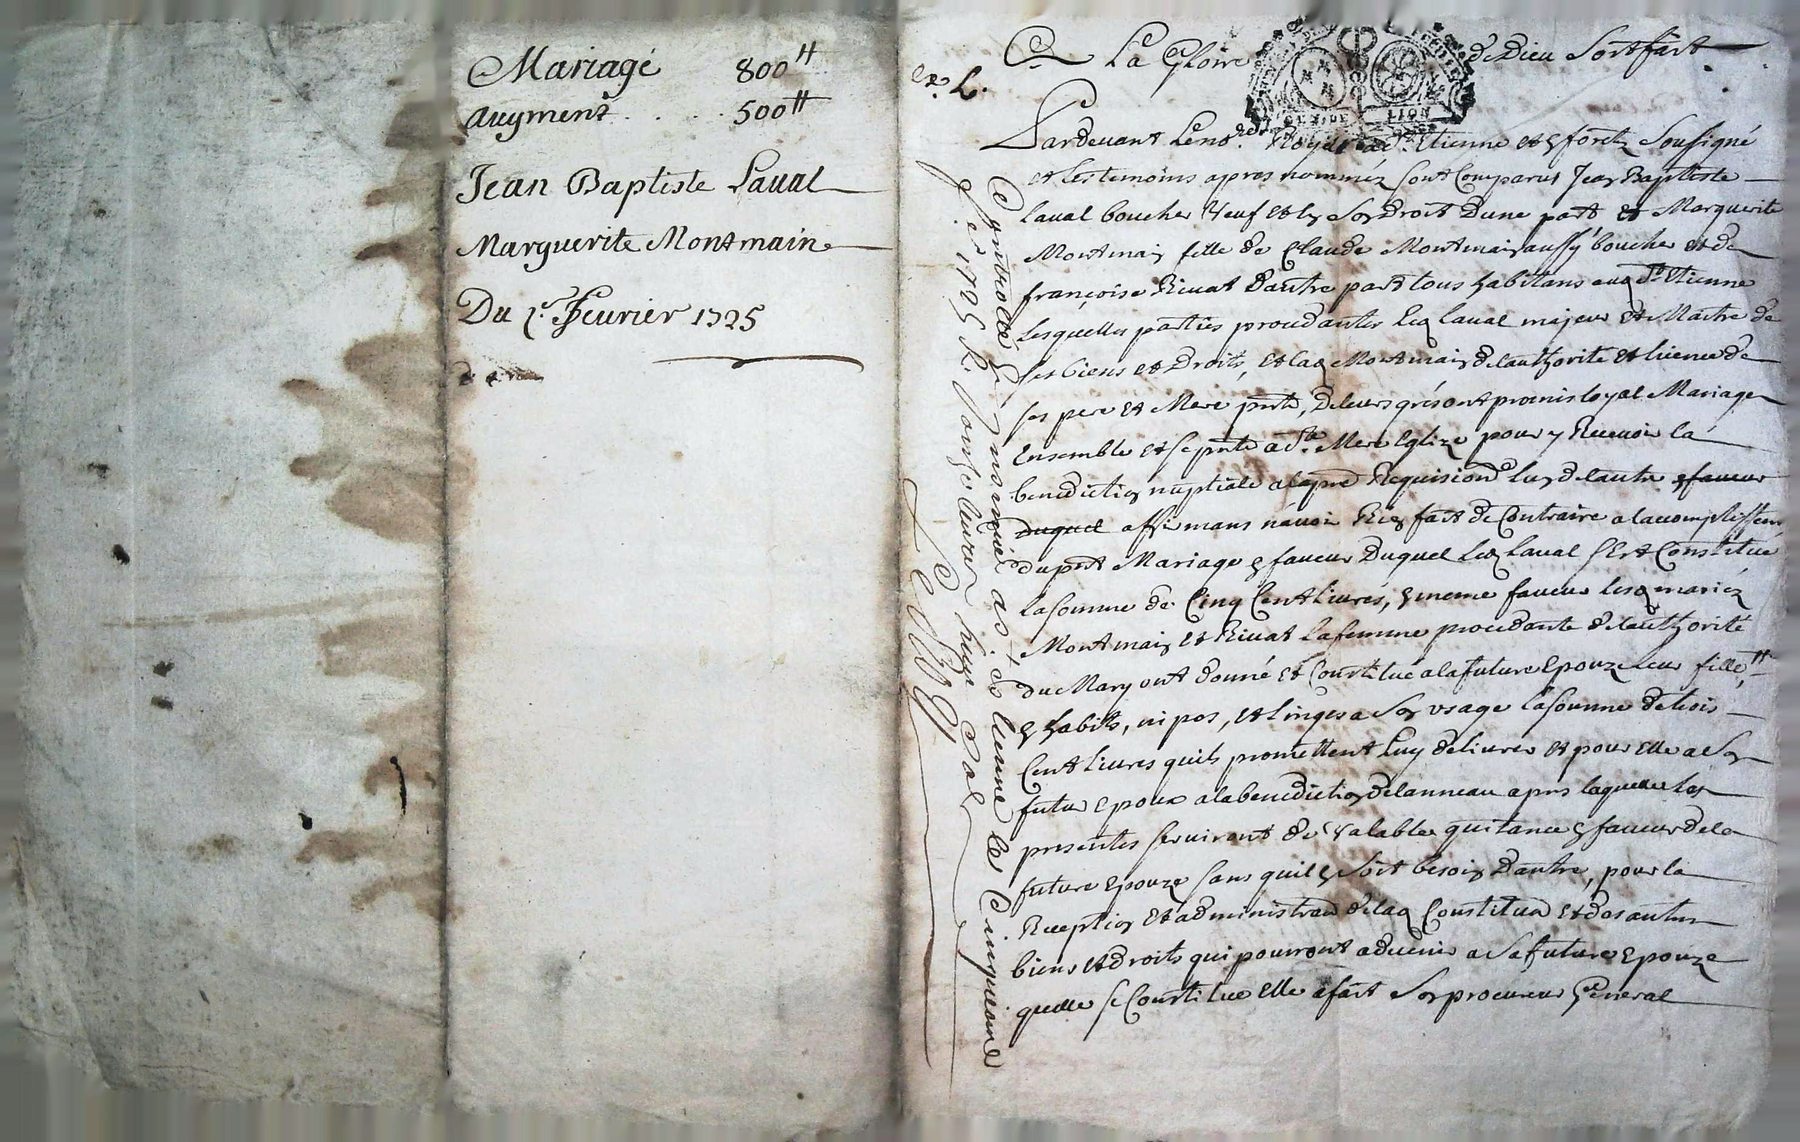 Mariage 800ᵗᵗ
augment . . . . 500ᵗᵗ
Jean Baptiste Laual
Marguerite Montmain
Du 1.er Feurier 1725
A La Gloire de Dieu Soit fait
GEN. DE LION
Pardeuant Le no.re Royal a St Etienne et foretz Sousigné
et les temoins apres nommez sont Comparus Jean Baptiste
laual boucher Veuf et en Son Droit Dune part et Marguerite
Montmain fille de Claude Montmain aussy boucher et de
françoise Riuat Dautre part tous habitans aud St Etienne
lesquelles parties procedantes led laual majeur et Maitre de
ses biens et Droits, et lad Montmain de lauthorité et licence de
ses pere et Mere pnts, de leurs grés ont promis loyal Mariage
Ensemble et se pnter a Ste Mere Eglize pour y Receuoir la
benediction nuptiale a la pre Requision de lun de lautre en faueur
Duquel affirmans nauoir Rien fait de Contraire a lacomplissem
du pnt Mariage en faueur Duquel led laual sest Constitué
la somme de Cinq Cent liures, en meme faueur lesd mariez
Montmain et Riuat la femme procedante de lauthorité
du Mary ont donné et Constitué a la future Epouze leur fille,
en habits, nipos, et linges a Son vsage la somme de trois
Cent liures quils promettent luy deliurer et pour Elle a Son
futur Epoux a la benediction de lanneau apres laquelle les
presentes seruiront de Valable quitance en faueur de la
future Epouze sans quil en Soit besoin Dautre, pour la
Reception et administraon de lad Constituon et des autres
biens et droits qui pourront aduenir a la future Epouze
quelle se Constitue Elle a fait Son procureur General
Controllé en nommé a St Etienne le Cinquieme
f. 1725 R. Douze liures huit Sols